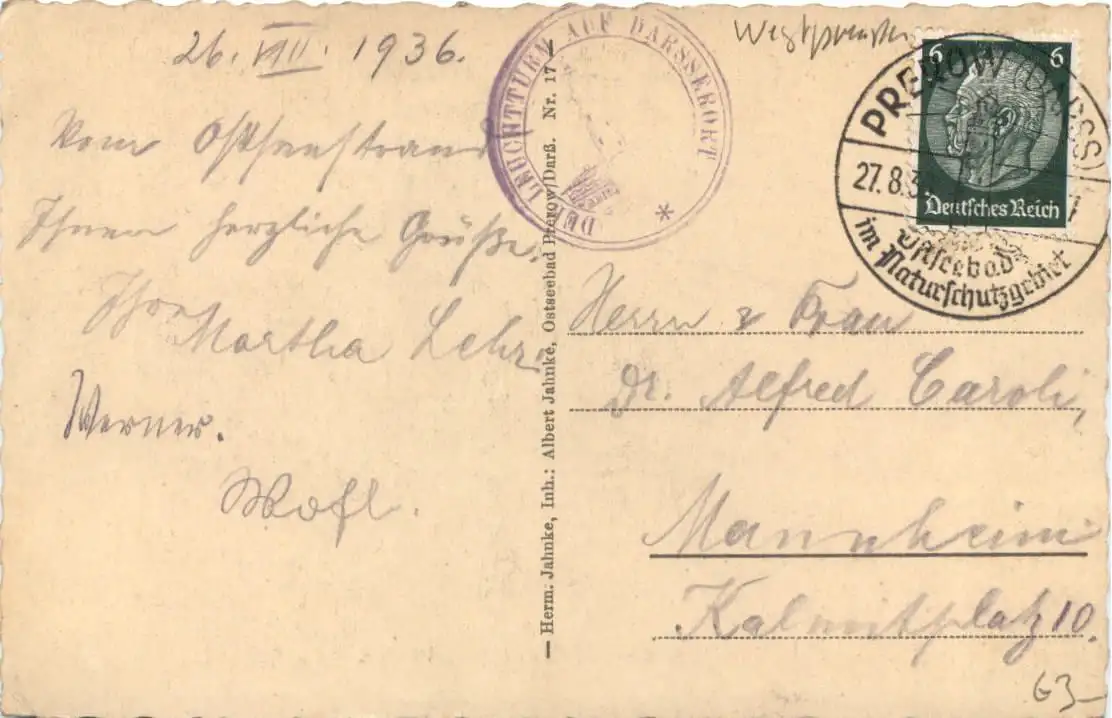 26. VIII. 1936.
Vom Ostseestrand
Ihnen herzliche Grüße
Ihre
Martha Lehr,
Werner.
DER LEUCHTTURM AUF DARSSERORT *
— Herm: Jahnke, Inh.: Albert Jahnke, Ostseebad Prerow/Darß. Nr. 17 —
6 6
Deutsches Reich
PREROW (DARSS)
27.8.3
Ostseebad
im Naturschutzgebiet
Herrn & Frau
Dr. Alfred Caroli,
Mannheim
Kalmitplatz 10.
63-